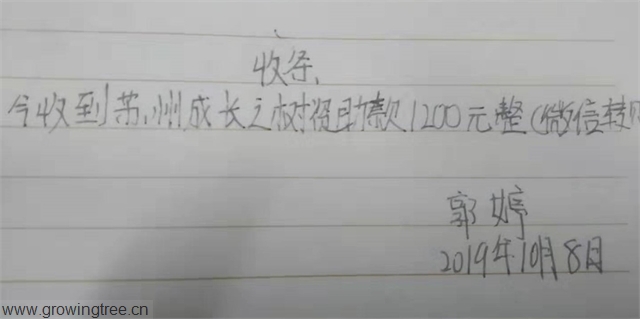 收条
今收到苏州成长之树资助款1200元整(微信转
郭婷
2019年10月8日
www.growingtree.cn